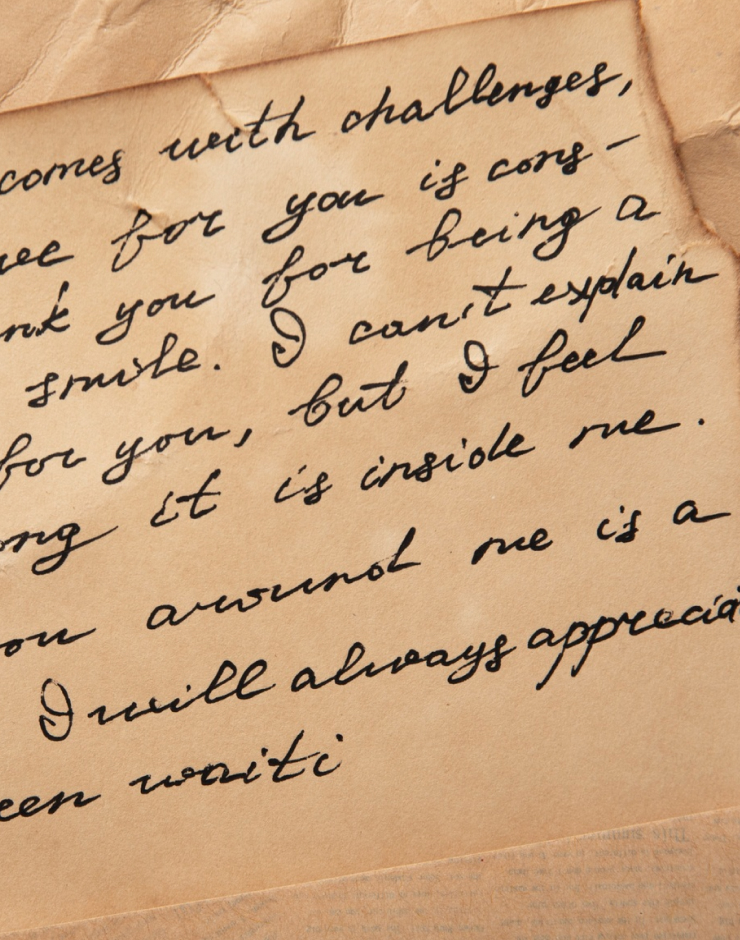 comes with challenges,
for you is cons-
nk you for being a
smile. I can't explain
for you, but I feel
ong it is inside me.
ou around me is a
I will always apprecia
een waiti